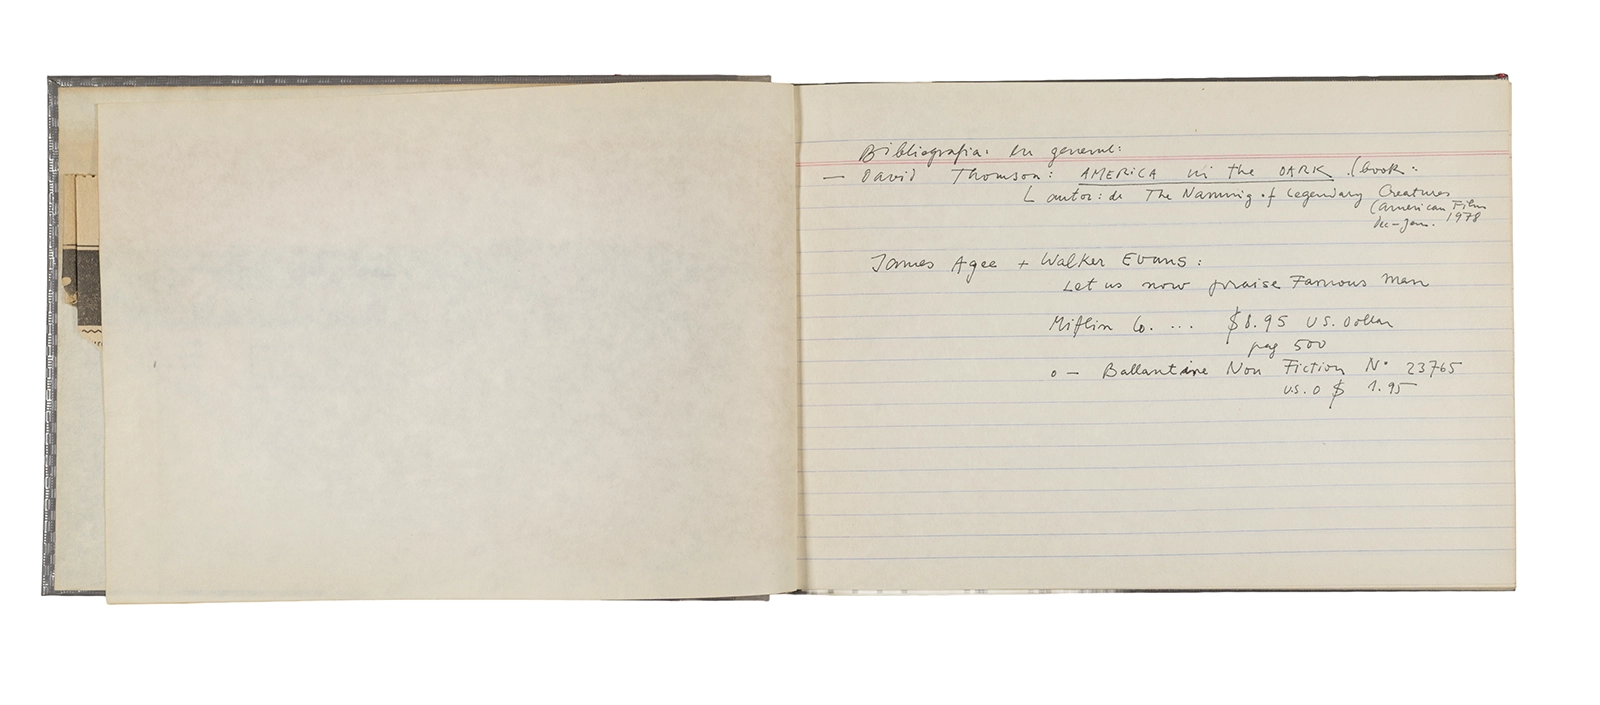 Bibliografia. en general:
— David Thomson: AMERICA in the DARK. (book.
L autor: de The Naming of Legendary Creatures
(American Film
Dec-Jan. 1978
James Agee + Walker Evans:
Let us now praise Famous Men
Miflin Co. ... $8.95 US. Dollar
pag 500
o — Ballantine Non Fiction Nº 23765
U.S. D $ 1.95